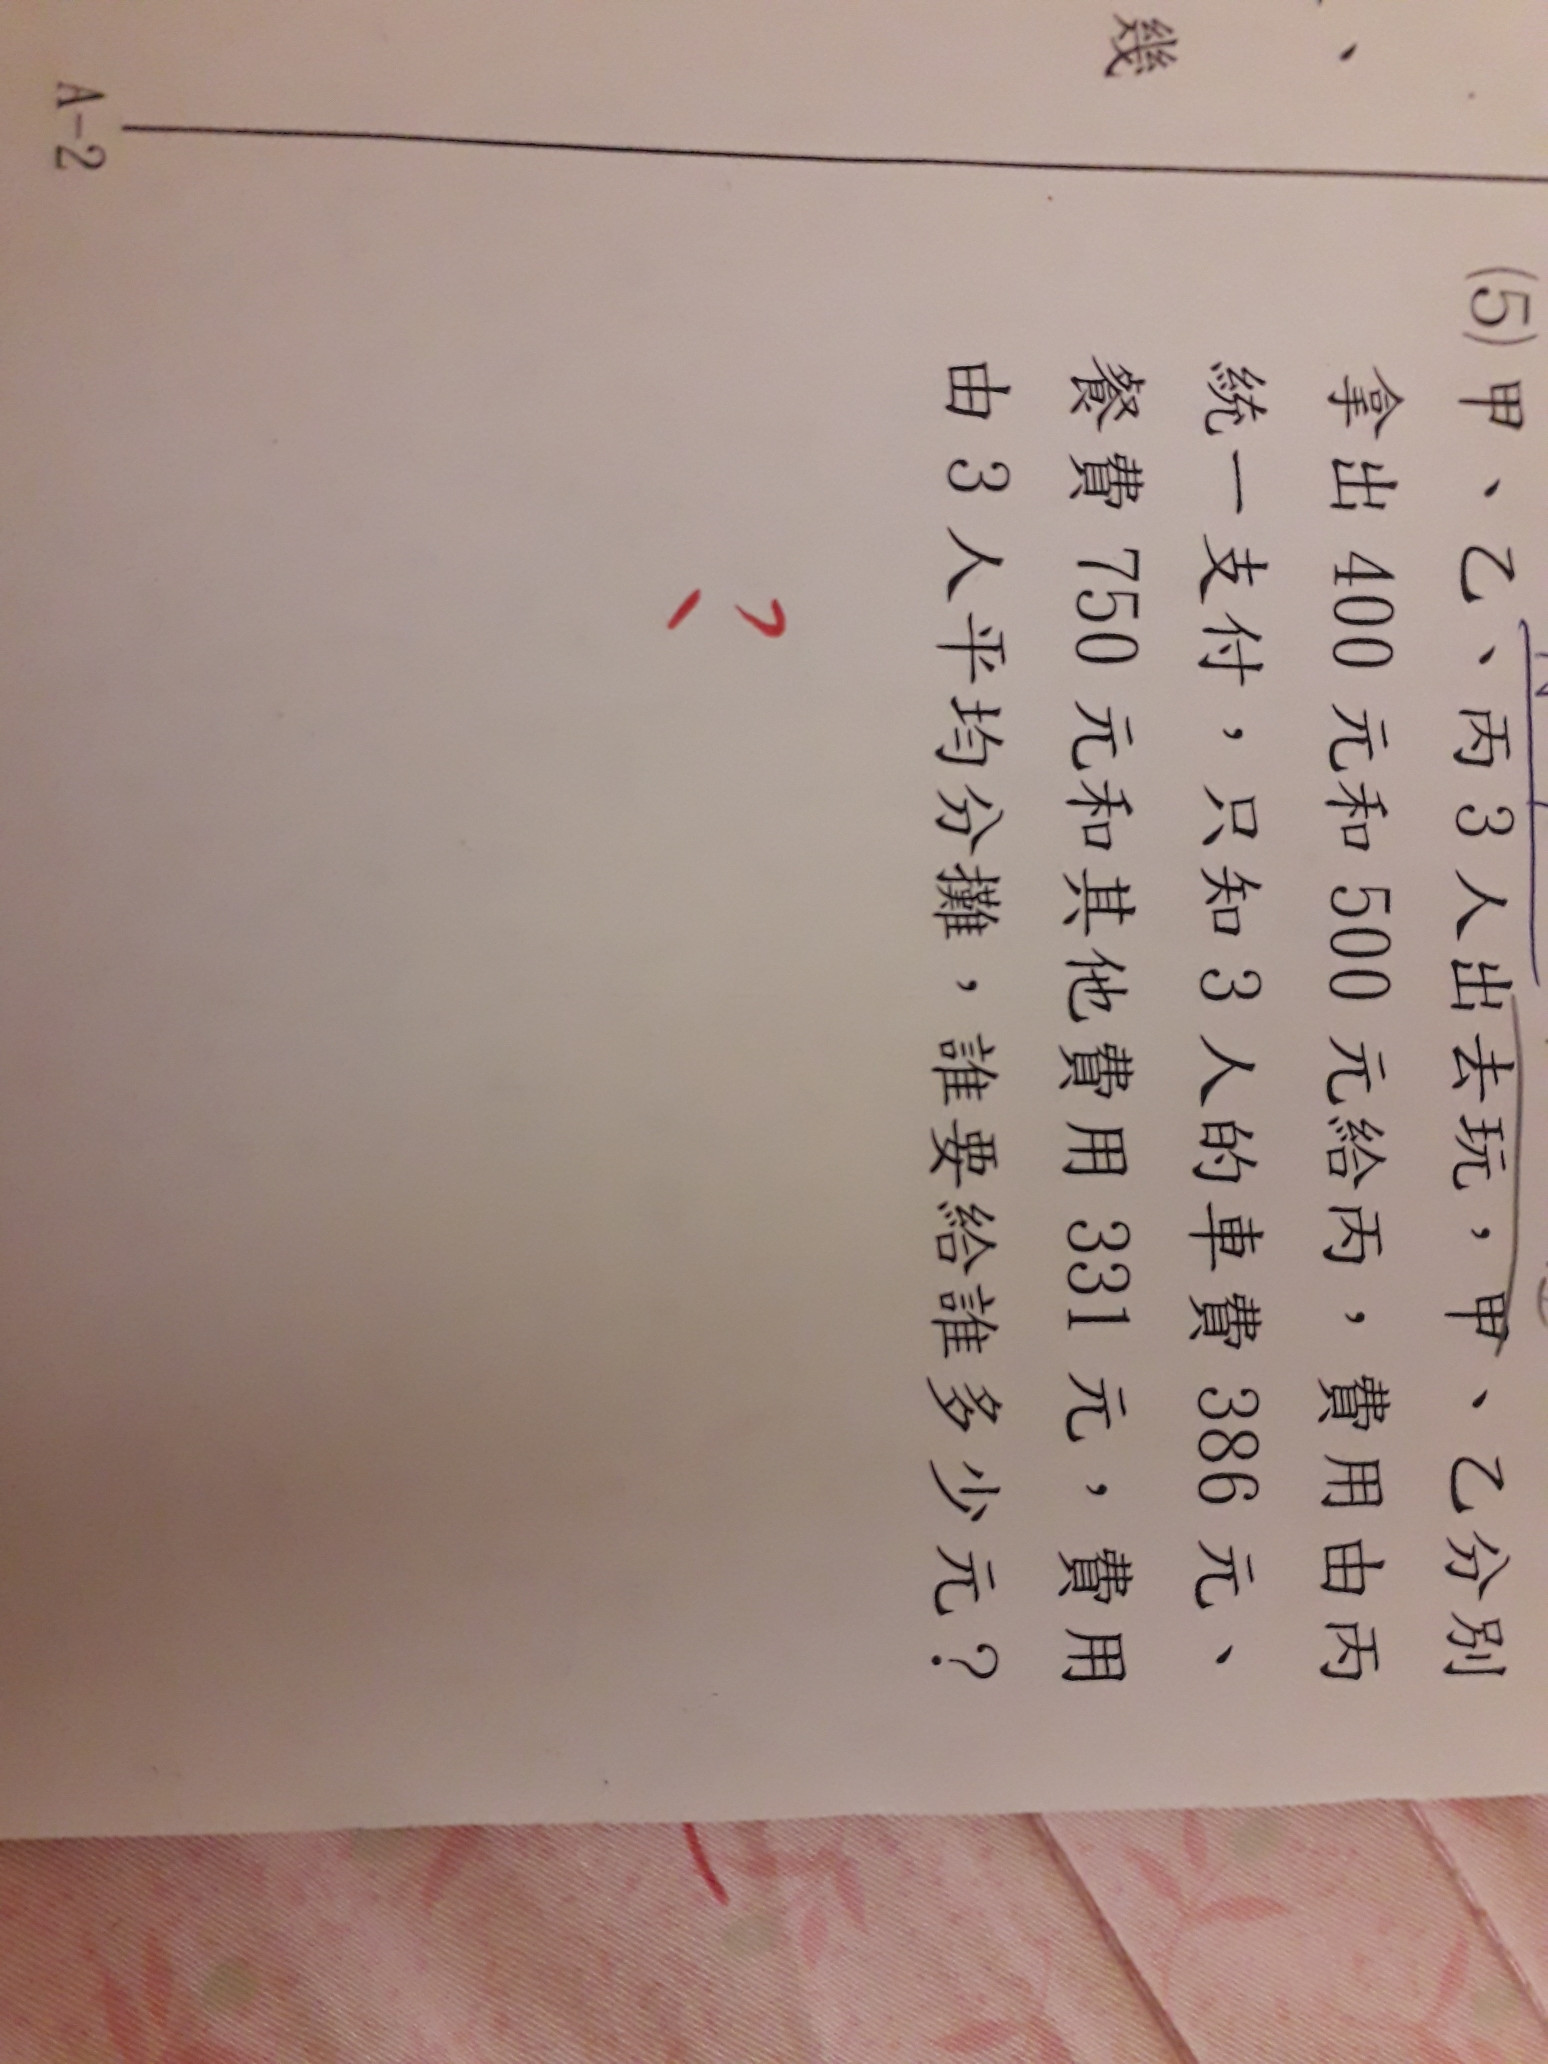 幾
、
(5)甲、乙、丙3人出去玩，甲、乙分別
拿出400元和500元給丙，費用由丙
統一支付，只知3人的車費386元、
餐費750元和其他費用331元，費用
由3人平均分攤，誰要給誰多少元？
?
A-2